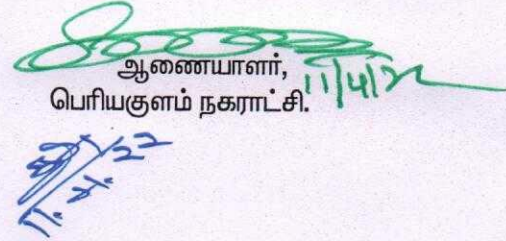 ஆணையாளர்,
பெரியகுளம் நகராட்சி.
11/4/22